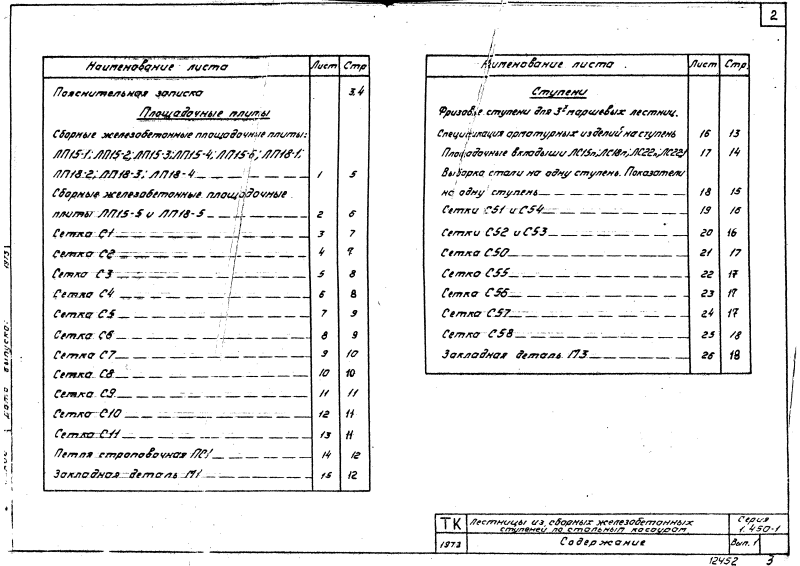 2
Наименование листа Лист Стр
Пояснительная записка 3.4
Площадочные плиты
Сборные железобетонные площадочные плиты:
ЛП15-1; ЛП15-2; ЛП15-3; ЛП15-4; ЛП15-6; ЛП18-1;
ЛП18-2; ЛП18-3; ЛП18-4 1 5
Сборные железобетонные площадочные
плиты ЛП15-5 и ЛП18-5 2 6
Сетка С1 3 7
Сетка С2 4 7
Сетка С3 5 8
Сетка С4 6 8
Сетка С5 7 9
Сетка С6 8 9
Сетка С7 9 10
Сетка С8 10 10
Сетка С9 11 11
Сетка С10 12 11
Сетка С11 13 11
Петля строповочная ПС1 14 12
Закладная деталь М1 15 12
Наименование листа Лист Стр.
Ступени
Фризовые ступени для 3х маршевых лестниц.
Спецификация арматурных изделий на ступень 16 13
Площадочные вкладыши ЛС15п; ЛС18п; ЛС22п; 17 14
Выборка стали на одну ступень. Показатели
на одну ступень 18 15
Сетки С51 и С54 19 16
Сетки С52 и С53 20 16
Сетка С50 21 17
Сетка С55 22 17
Сетка С56 23 17
Сетка С57 24 17
Сетка С58 25 18
Закладная деталь М3 26 18
дата выпуска: 1973
ТК Лестницы из сборных железобетонных
ступеней по стальным косоурам Серия
1.450-1
1973 Содержание Вып. 1
12452 3